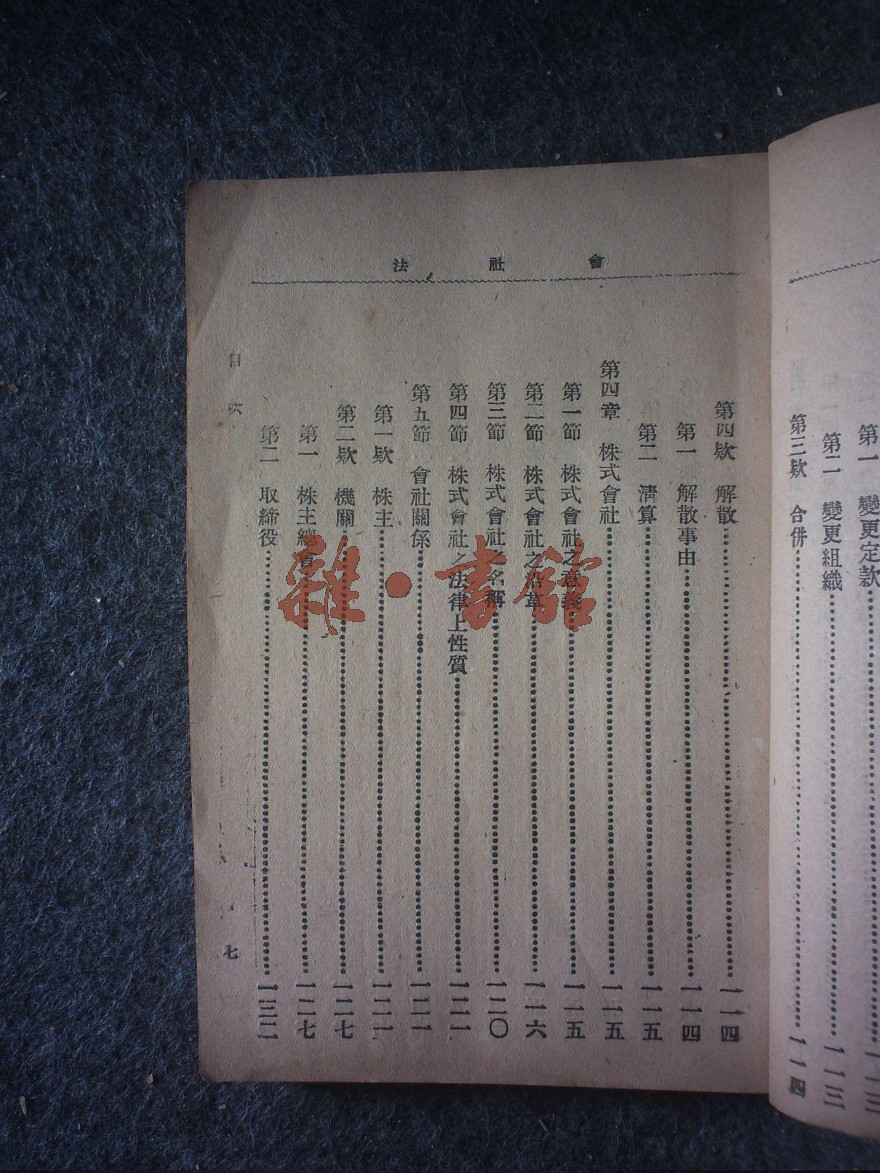 第一 變更定款……一一三
第二 變更組織……一一三
第三欵 合併……一一四
會社法
第四欵 解散……一一四
第一 解散事由……一一四
第二 淸算……一一五
第四章 株式會社……一一五
第一節 株式會社之意義……一一五
第二節 株式會社之沿革……一一六
第三節 株式會社之名稱……一二〇
第四節 株式會社之法律上性質……一二一
第五節 會社關係……一二一
第一欵 株主……一二一
第二欵 機關……一二七
第一 株主總會……一二七
第二 取締役……一三二
目次
七
雜·書館